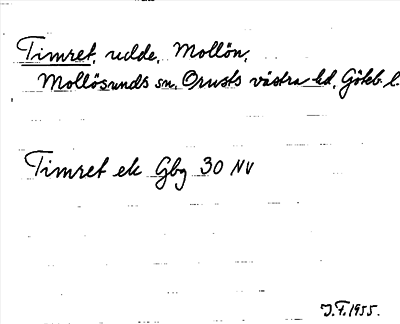 Timret, redde, Mollön,
Mollösunds sn, Orusts västra hd, Göteb. l.
Timret ek Gbg 30 NV
J.F. 1955.